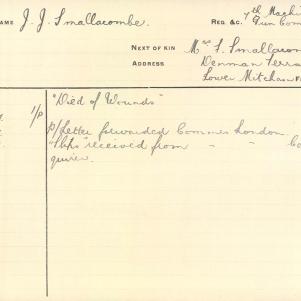 NAME J. J. Smallacombe. REG. &C. 7th Machi
Gun Com
NEXT OF KIN Mrs F. Smallaco
ADDRESS Denman Terra
Lower Mitcham
1/P "Died of Wounds"
P/Letter forwarded Commrs London.
received from " " Co